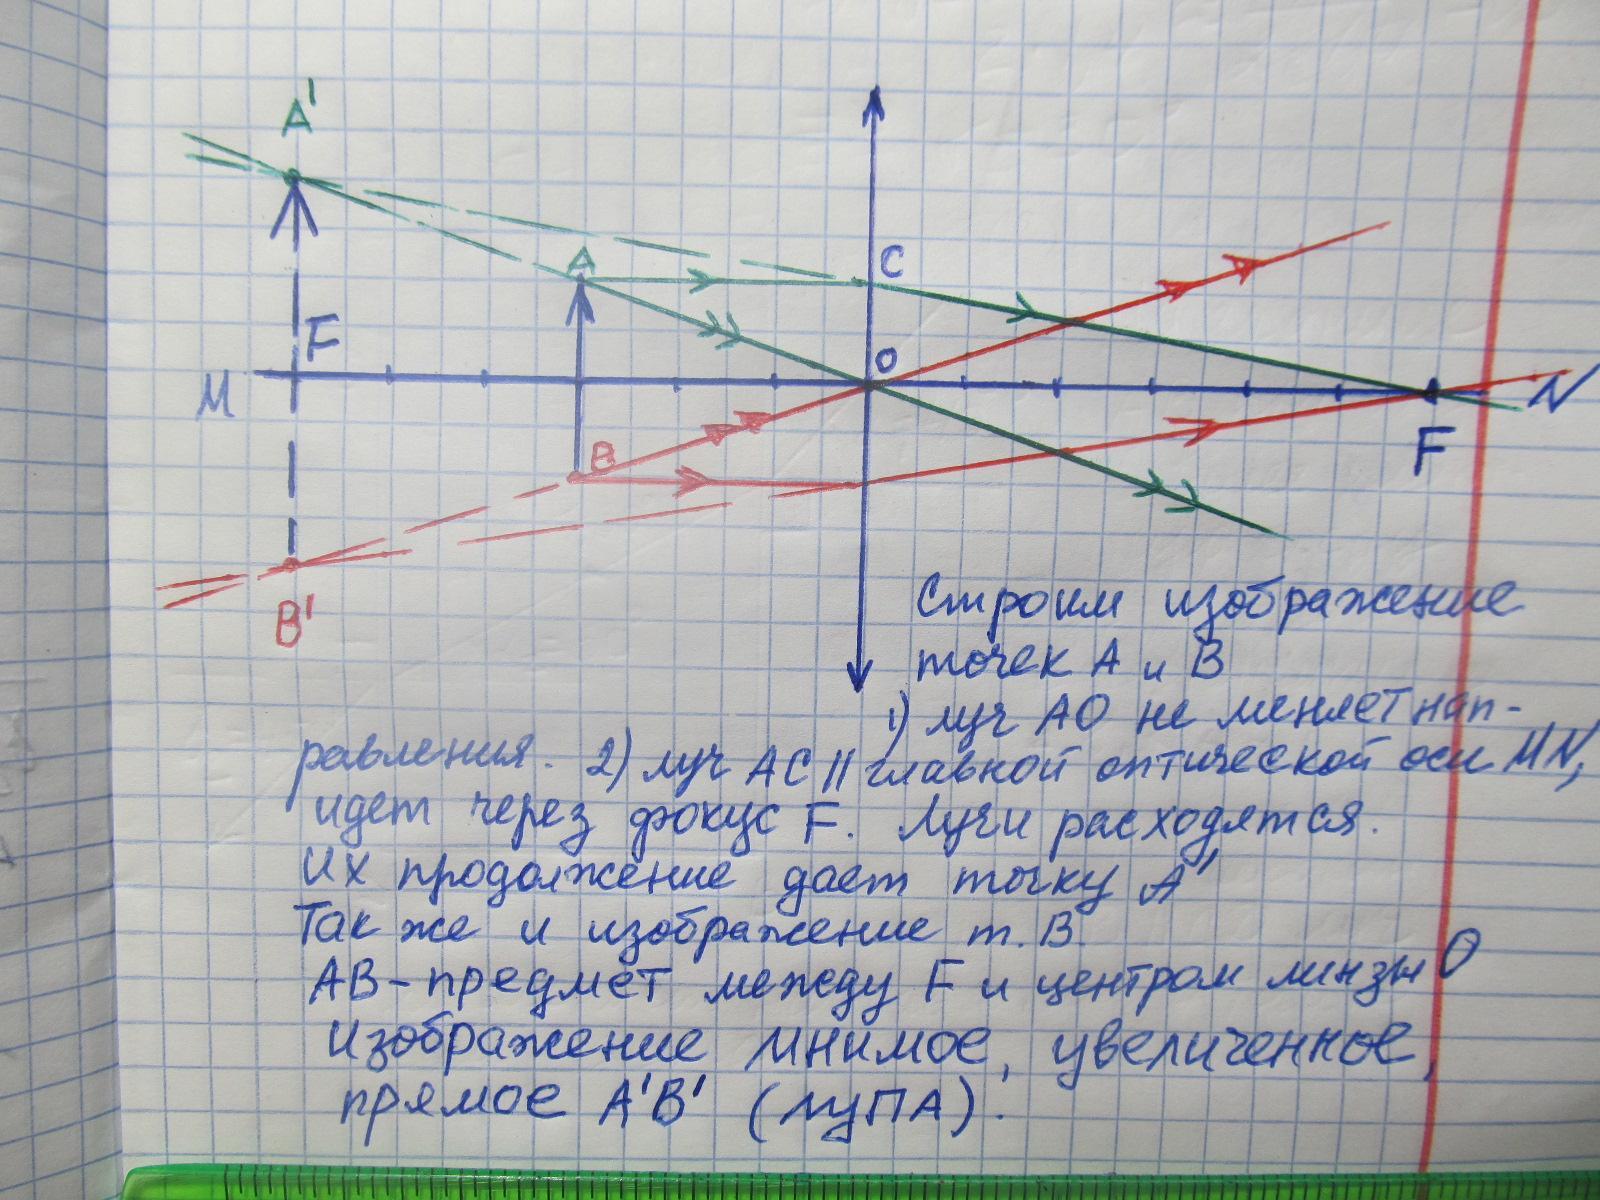 A'
A
C
F
O
M
N
B
F
B'
Строим изображение
точек А и В
1) луч АО не меняет нап-
равления. 2) луч АС || главной оптической оси MN,
идет через фокус F. Лучи расходятся.
Их продолжение дает точку А'
Так же и изображение т. В.
АВ - предмет между F и центром линзы О
Изображение мнимое, увеличенное,
прямое А'В' (лупА).